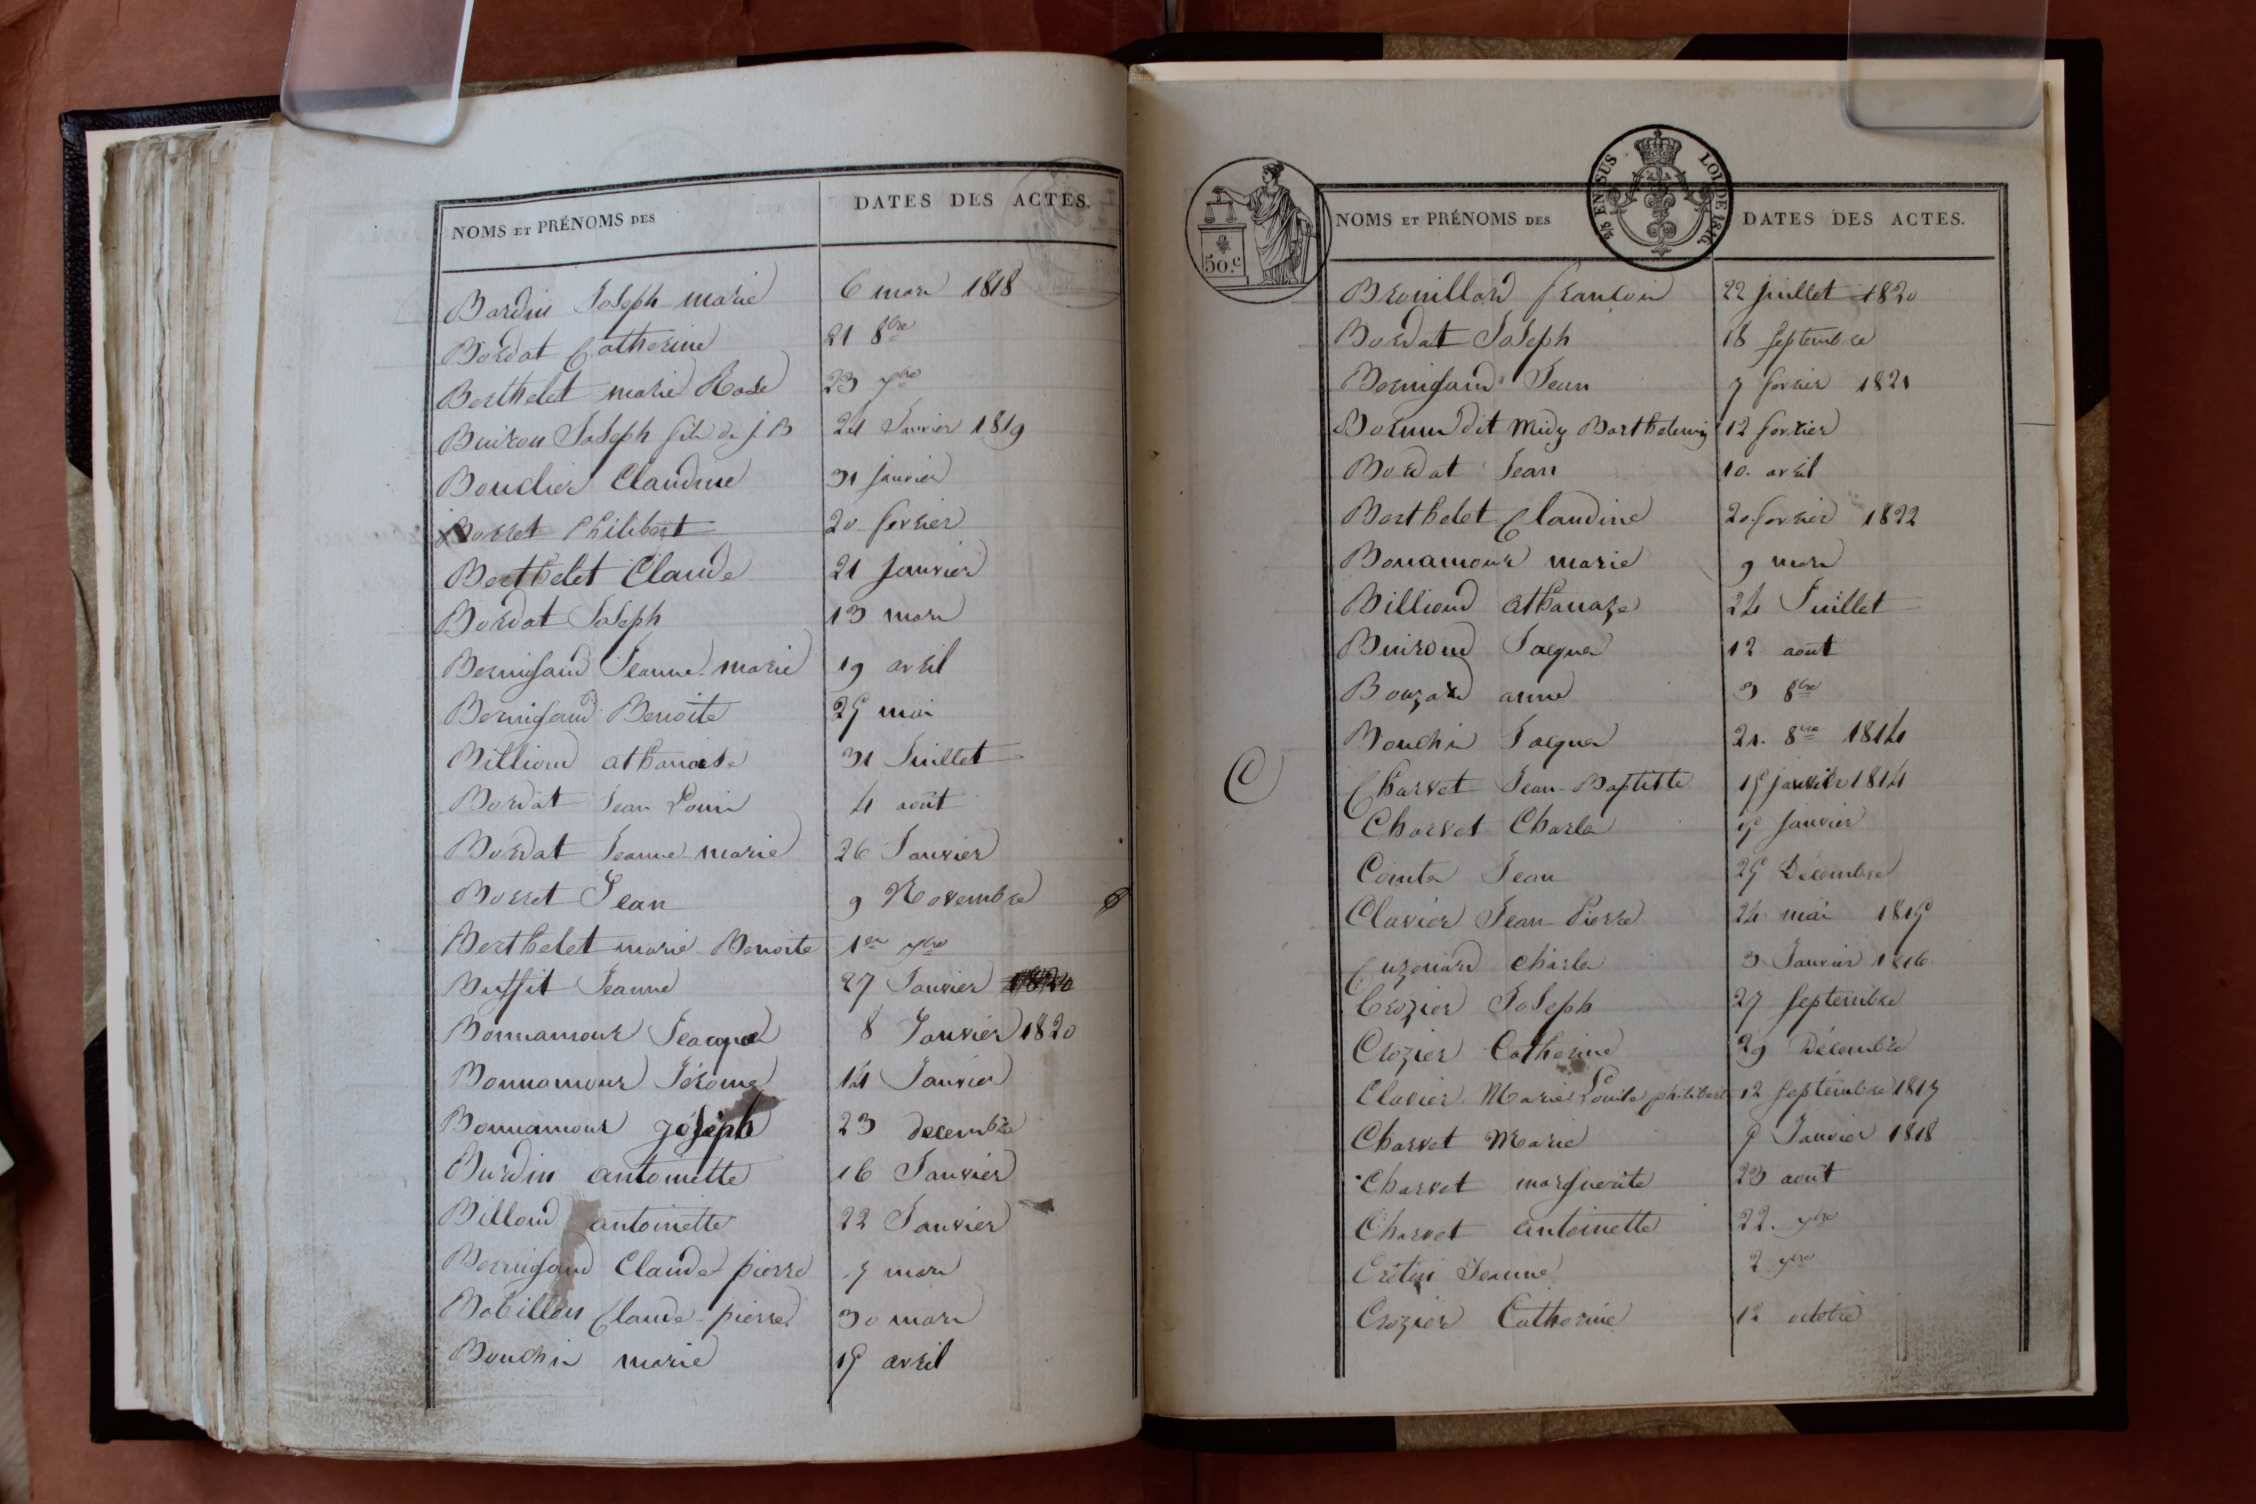 NOMS ET PRÉNOMS DES
DATES DES ACTES.
Bardin Joseph marie 6 mars 1818
Bordat Catherine 21 8bre
Berthelet marie Rose 23 7bre
Buiron Joseph fils de J B 24 Janvier 1819
Bouclier Claudine 31 janvier
Borret Philibert 20 fevrier
Berthelet Claude 21 Janvier
Bordat Joseph 13 mars
Bernigaud Jeanne marie 19 avril
Bernigaud Benoite 25 mai
Billioud athanase 31 Juillet
Bordat Jean Louis 4 août
Bordat Jeanne marie 26 Janvier
Borret Jean 9 Novembre
Berthelet marie Benoite 1er
Buffit Jeanne 27 Janvier 1820
Bonnamour Jeacques 8 Janvier 1820
Bonnamour Jérome 14 Janvier
Bonnamour joseph 23 decembre
Burdin antoinette 16 Janvier
Billoud antoinette 22 Janvier
Bernigaud Claude pierre 7 mars
Bobillon Claude pierre 30 mars
Bouchin marie 15 avril
50.c
25 EN SUS
LOI DE 1816.
NOMS ET PRÉNOMS DES
DATES DES ACTES.
Brouillard francois 22 juillet 1820
Bordat Joseph 18 septembre
Bernigaud Jean 7 fevrier 1821
dit Midy Barthelemy 12 fevrier
Bordat Jean 10. avril
Berthelet Claudine 20 fevrier 1822
Bonamour marie 9 mars
Billioud athanaze 24 Juillet
Buiroud Jacques 12 aout
Bouzard anne 3 8bre
Bouchin Jacques 21. 8bre 1814
C
Charvet Jean-Baptiste 15 janvier 1814
Charvet Charles 15 Janvier
Comte Jean 25 Décembre
Clavier Jean Pierre 24 mai 1815
Cuzouard charles 3 Janvier 1816
Crozier Joseph 27 septembre
Crozier Catherine 29 Décembre
Clavier Marie Louise philibert 12 septembre 1817
Charvet Marie 5 Janvier 1818
Charvet marguerite 23 aout
Charvet antoinette 22. 7bre
Crétin Jeanne 2
Crozier Catherine 12 octobre